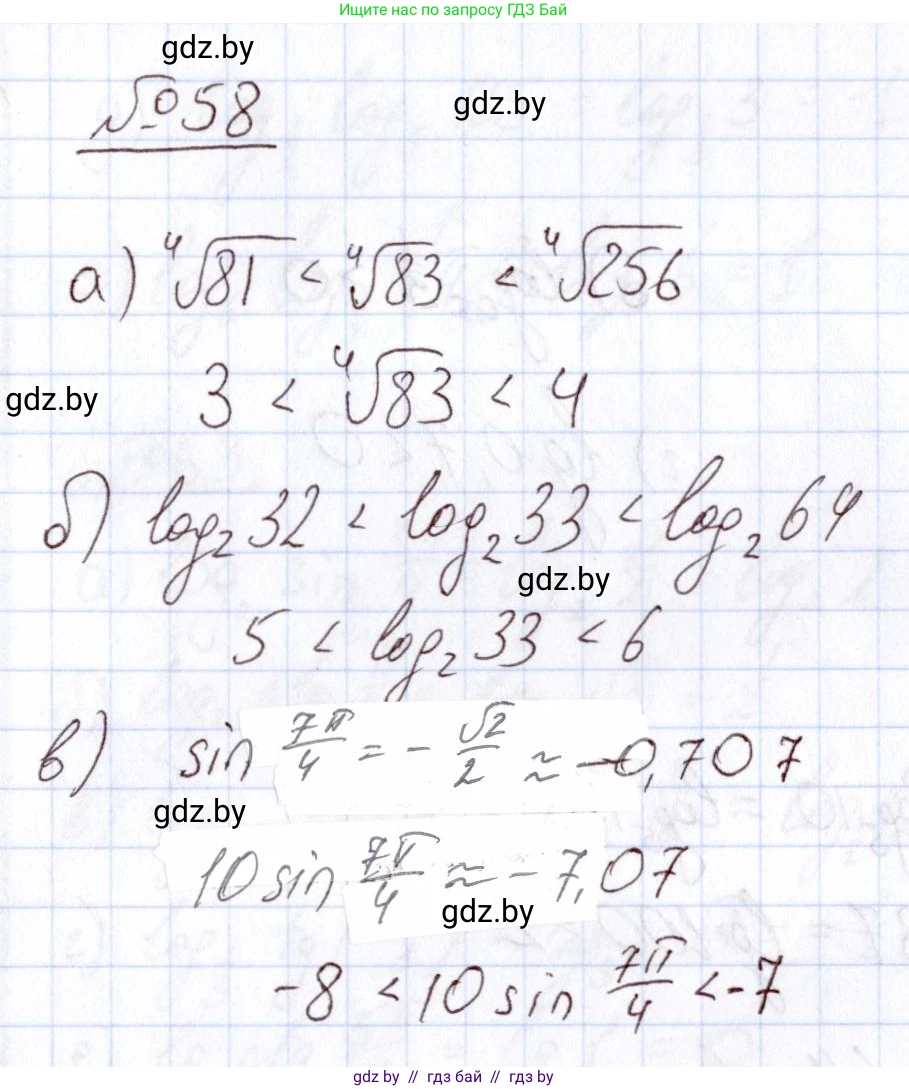 Ищите нас по запросу ГДЗ Бай
gdz.by
№58
gdz.by
а) ⁴√81 < ⁴√83 < ⁴√256
3 < ⁴√83 < 4
gdz.by
б) log₂ 32 < log₂ 33 < log₂ 64
gdz.by
5 < log₂ 33 < 6
в) sin 7π/4 = - √2/2 ≈ -0,707
gdz.by
10 sin 7π/4 ≈ - 7,07
gdz.by
-8 < 10 sin 7π/4 < -7
gdz.by // гдз бай // gdz by